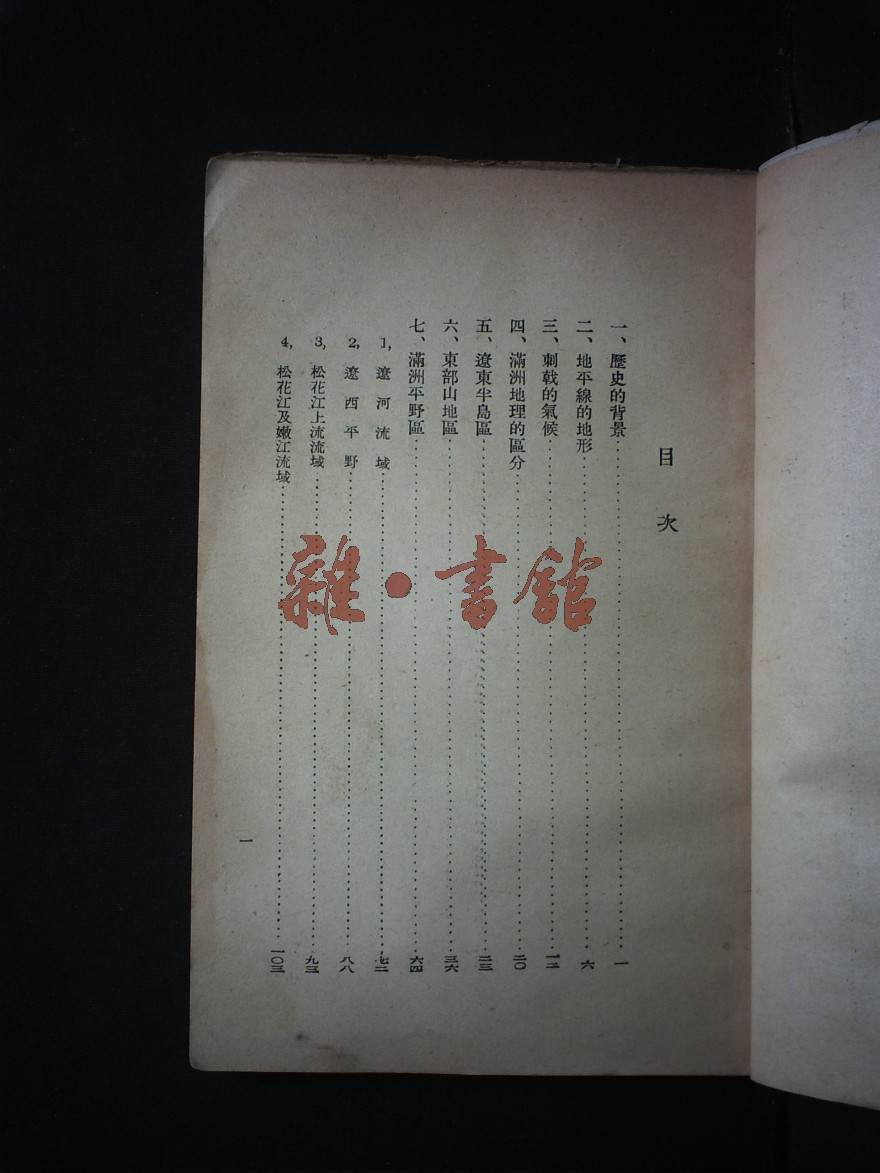 目次
一、歷史的背景……一
二、地平線的地形……六
三、刺戟的氣候……一二
四、滿洲地理的區分……二〇
五、遼東半島區……二三
六、東部山地區……三六
七、滿洲平野區……六四
1, 遼河流域……七二
2, 遼西平野……八八
3, 松花江上流流域……九三
4, 松花江及嫩江流域……一〇三
一
雜·書館